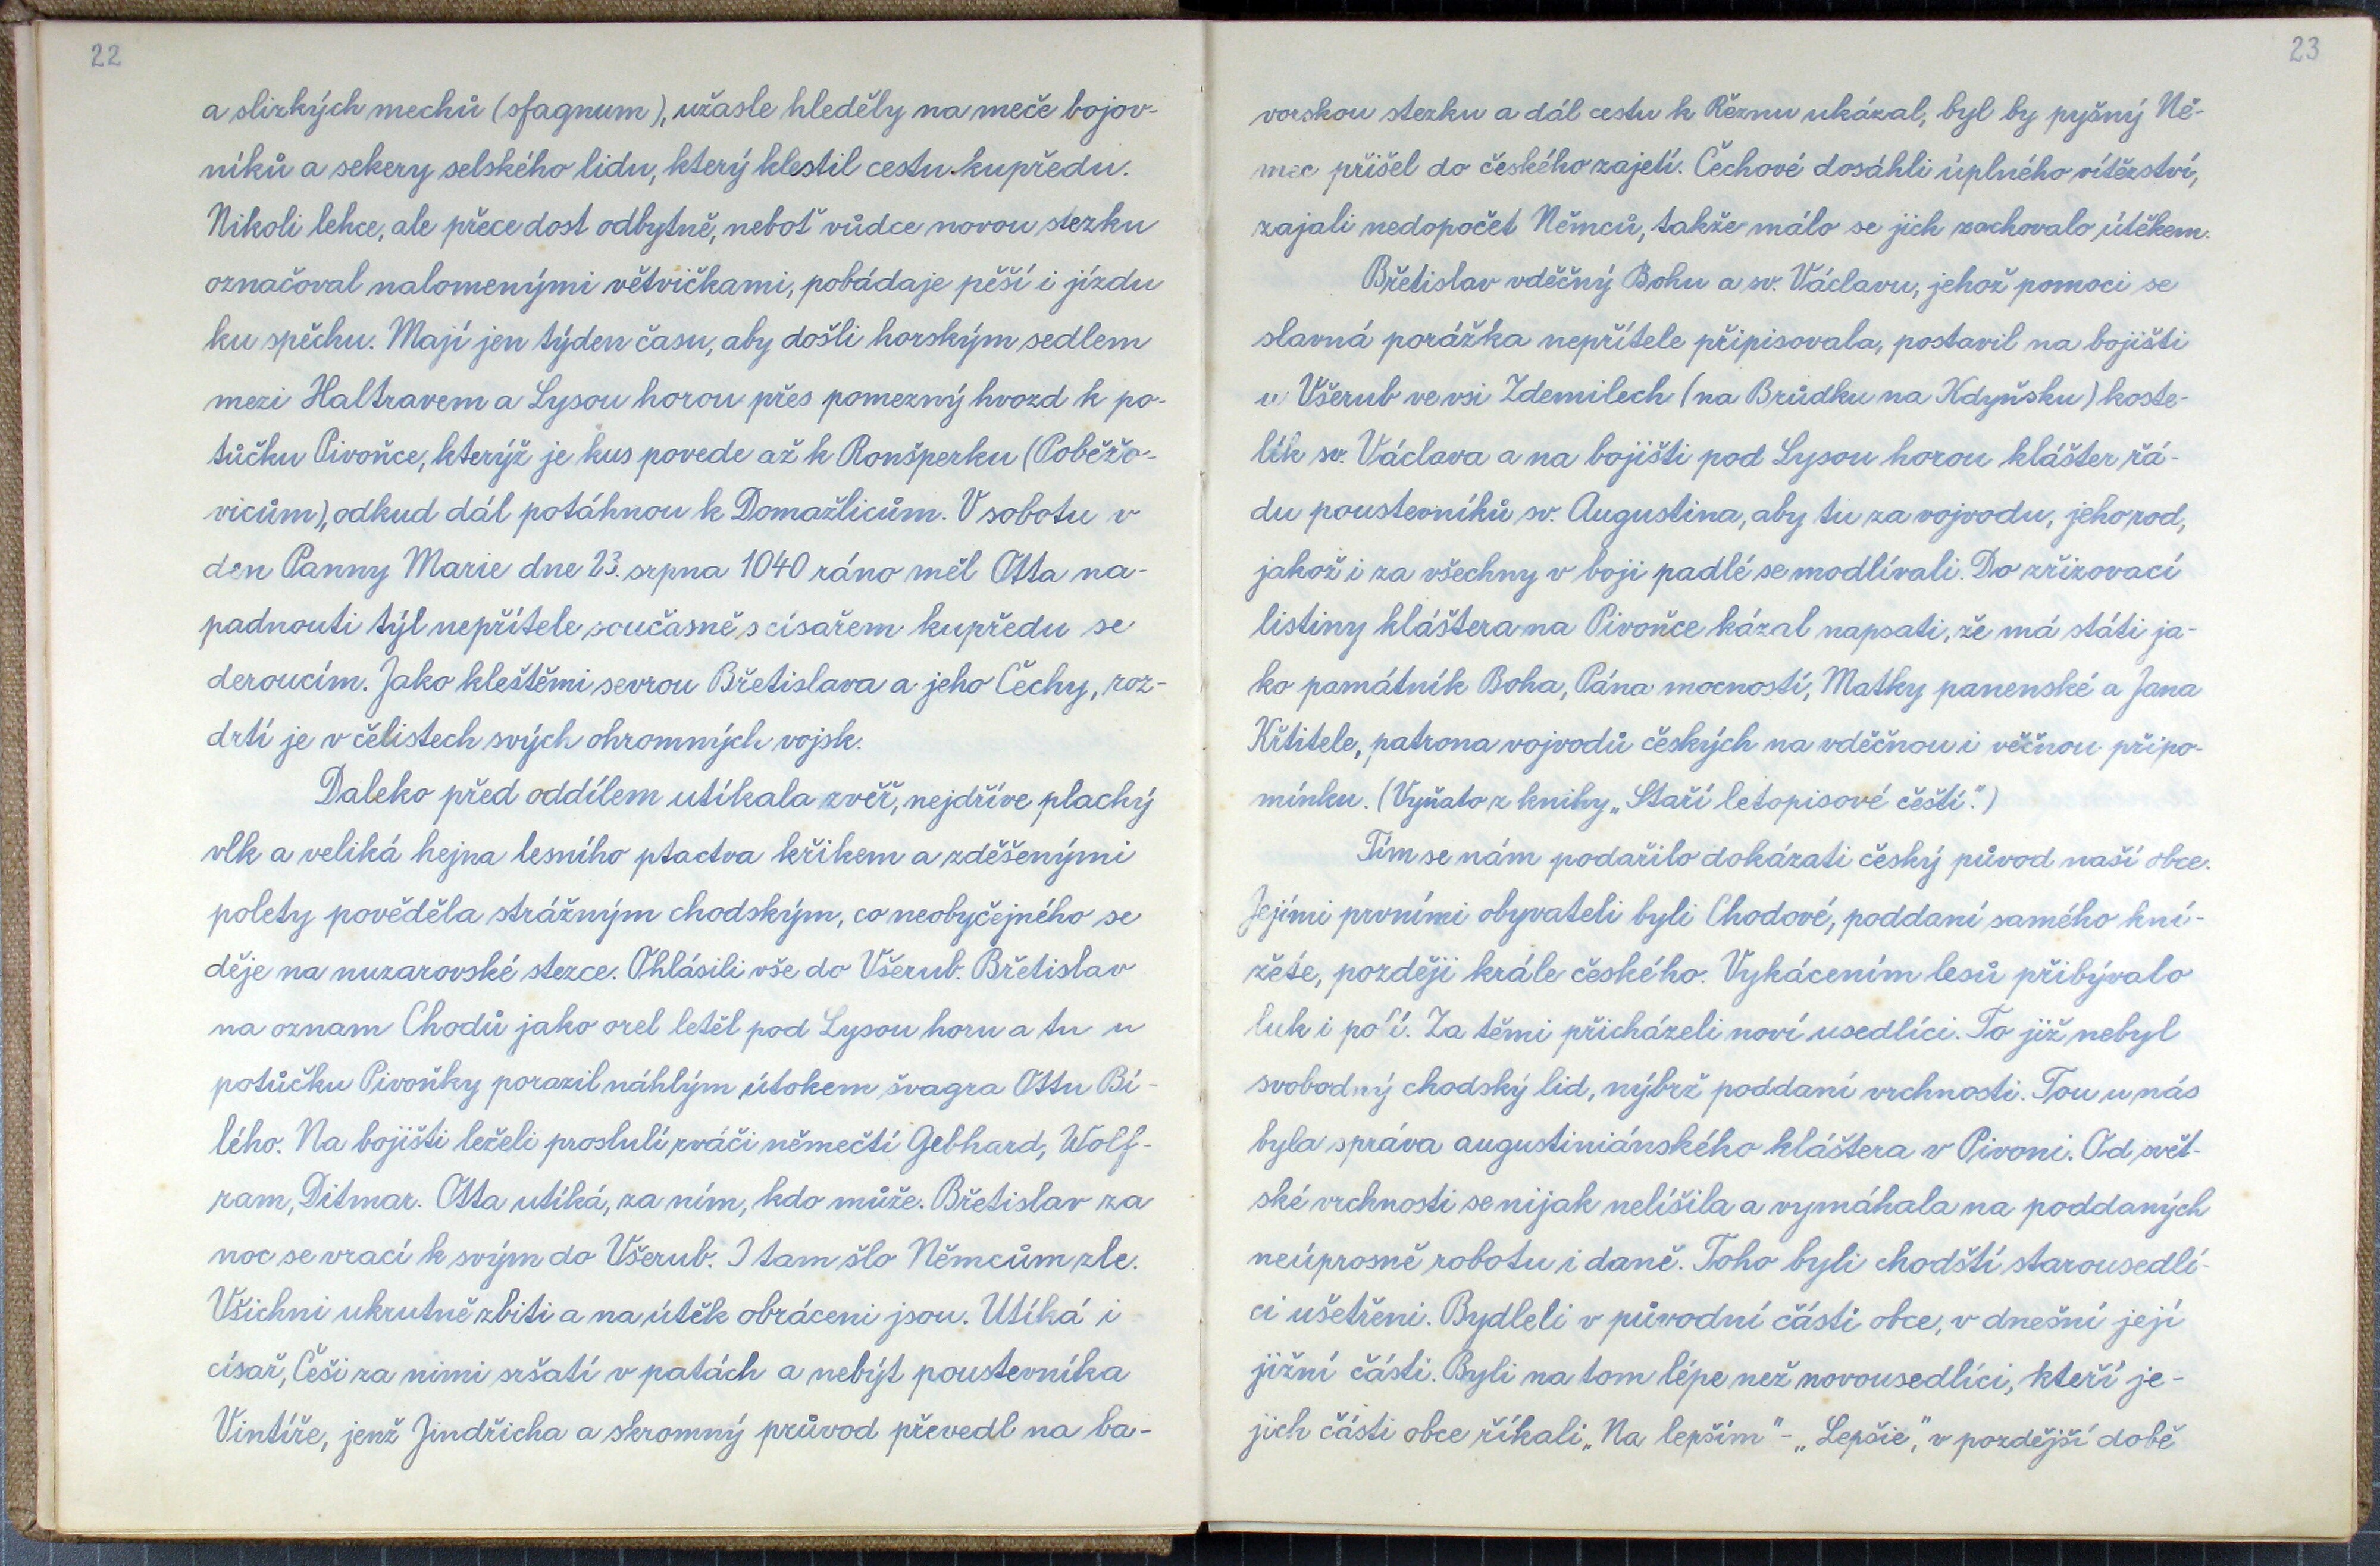 22
a slizkých mechů (sfagnum), užasle hleděly na meče bojov-
níků a sekery selského lidu, který klestil cestu kupředu.
Nikoli lehce, ale přece dost odbytně, neboť vůdce novou stezku
označoval nalomenými větvičkami, pobádaje pěší i jízdu
ku spěchu. Mají jen týden času, aby došli horským sedlem
mezi Haltravem a Lysou horou přes pomezný hvozd k po-
tůčku Pivoňce, kterýž je kus povede až k Ronšperku (Poběžo-
vicům), odkud dál potáhnou k Domažlicům. V sobotu v
den Panny Marie dne 23. srpna 1040 ráno měl Otta na-
padnouti týl nepřítele současně s císařem kupředu se
deroucím. Jako kleštěmi sevrou Břetislava a jeho Čechy, roz-
drtí je v čelistech svých ohromných vojsk.
Daleko před oddílem utíkala zvěř, nejdříve plachý
vlk a veliká hejna lesního ptactva křikem a zděšenými
polety pověděla strážným chodským, co neobyčejného se
děje na nuzarovské stezce. Ohlásili vše do Všerub. Břetislav
na oznam Chodů jako orel letěl pod Lysou horu a tu u
potůčku Pivoňky porazil náhlým útokem švagra Ottu Bí-
lého. Na bojišti leželi proslulí rváči němečtí Gebhard, Wolf-
ram, Ditmar. Otta utíká, za ním, kdo může. Břetislav za
noc se vrací k svým do Všerub. I tam šlo Němcům zle.
Všichni ukrutně zbiti a na útěk obráceni jsou. Utíká i
císař, Češi za nimi sršatí v patách a nebýt poustevníka
Vintíře, jenž Jindřicha a skromný průvod převedl na ba-
23
vorskou stezku a dál cestu k Řeznu ukázal, byl by pyšný Ně-
mec přišel do českého zajetí. Čechové dosáhli úplného vítězství,
zajali nedopočet Němců, takže málo se jich zachovalo útěkem.
Břetislav vděčný Bohu a sv. Václavu, jehož pomoci se
slavná porážka nepřítele připisovala, postavil na bojišti
u Všerub ve vsi Zdemilech (na Brůdku na Kdyňsku) koste-
lík sv. Václava a na bojišti pod Lysou horou klášter řá-
du poustevníků sv. Augustina, aby tu za vojvodu, jeho rod,
jakož i za všechny v boji padlé se modlívali. Do zřizovací
listiny kláštera na Pivoňce kázal napsati, že má státi ja-
ko památník Boha, Pána mocností, Matky panenské a Jana
Křtitele, patrona vojvodů českých na vděčnou i věčnou připo-
mínku. (Vyňato z knihy „Staří letopisové čeští“.)
Tím se nám podařilo dokázati český původ naší obce.
Jejími prvními obyvateli byli Chodové, poddaní samého kní-
žete, později krále českého. Vykácením lesů přibývalo
luk i polí. Za těmi přicházeli noví usedlíci. To již nebyl
svobodný chodský lid, nýbrž poddaní vrchnosti. Tou u nás
byla správa augustiniánského kláštera v Pivoni. Od svět-
ské vrchnosti se nijak nelišila a vymáhala na poddaných
neúprosně robotu i daně. Toho byli chodští starousedlí-
ci ušetřeni. Bydleli v původní části obce, v dnešní její
jižní části. Byli na tom lépe než novousedlíci, kteří je-
jich části obce říkali „Na lepším“ - „Lepšie“, v pozdější době